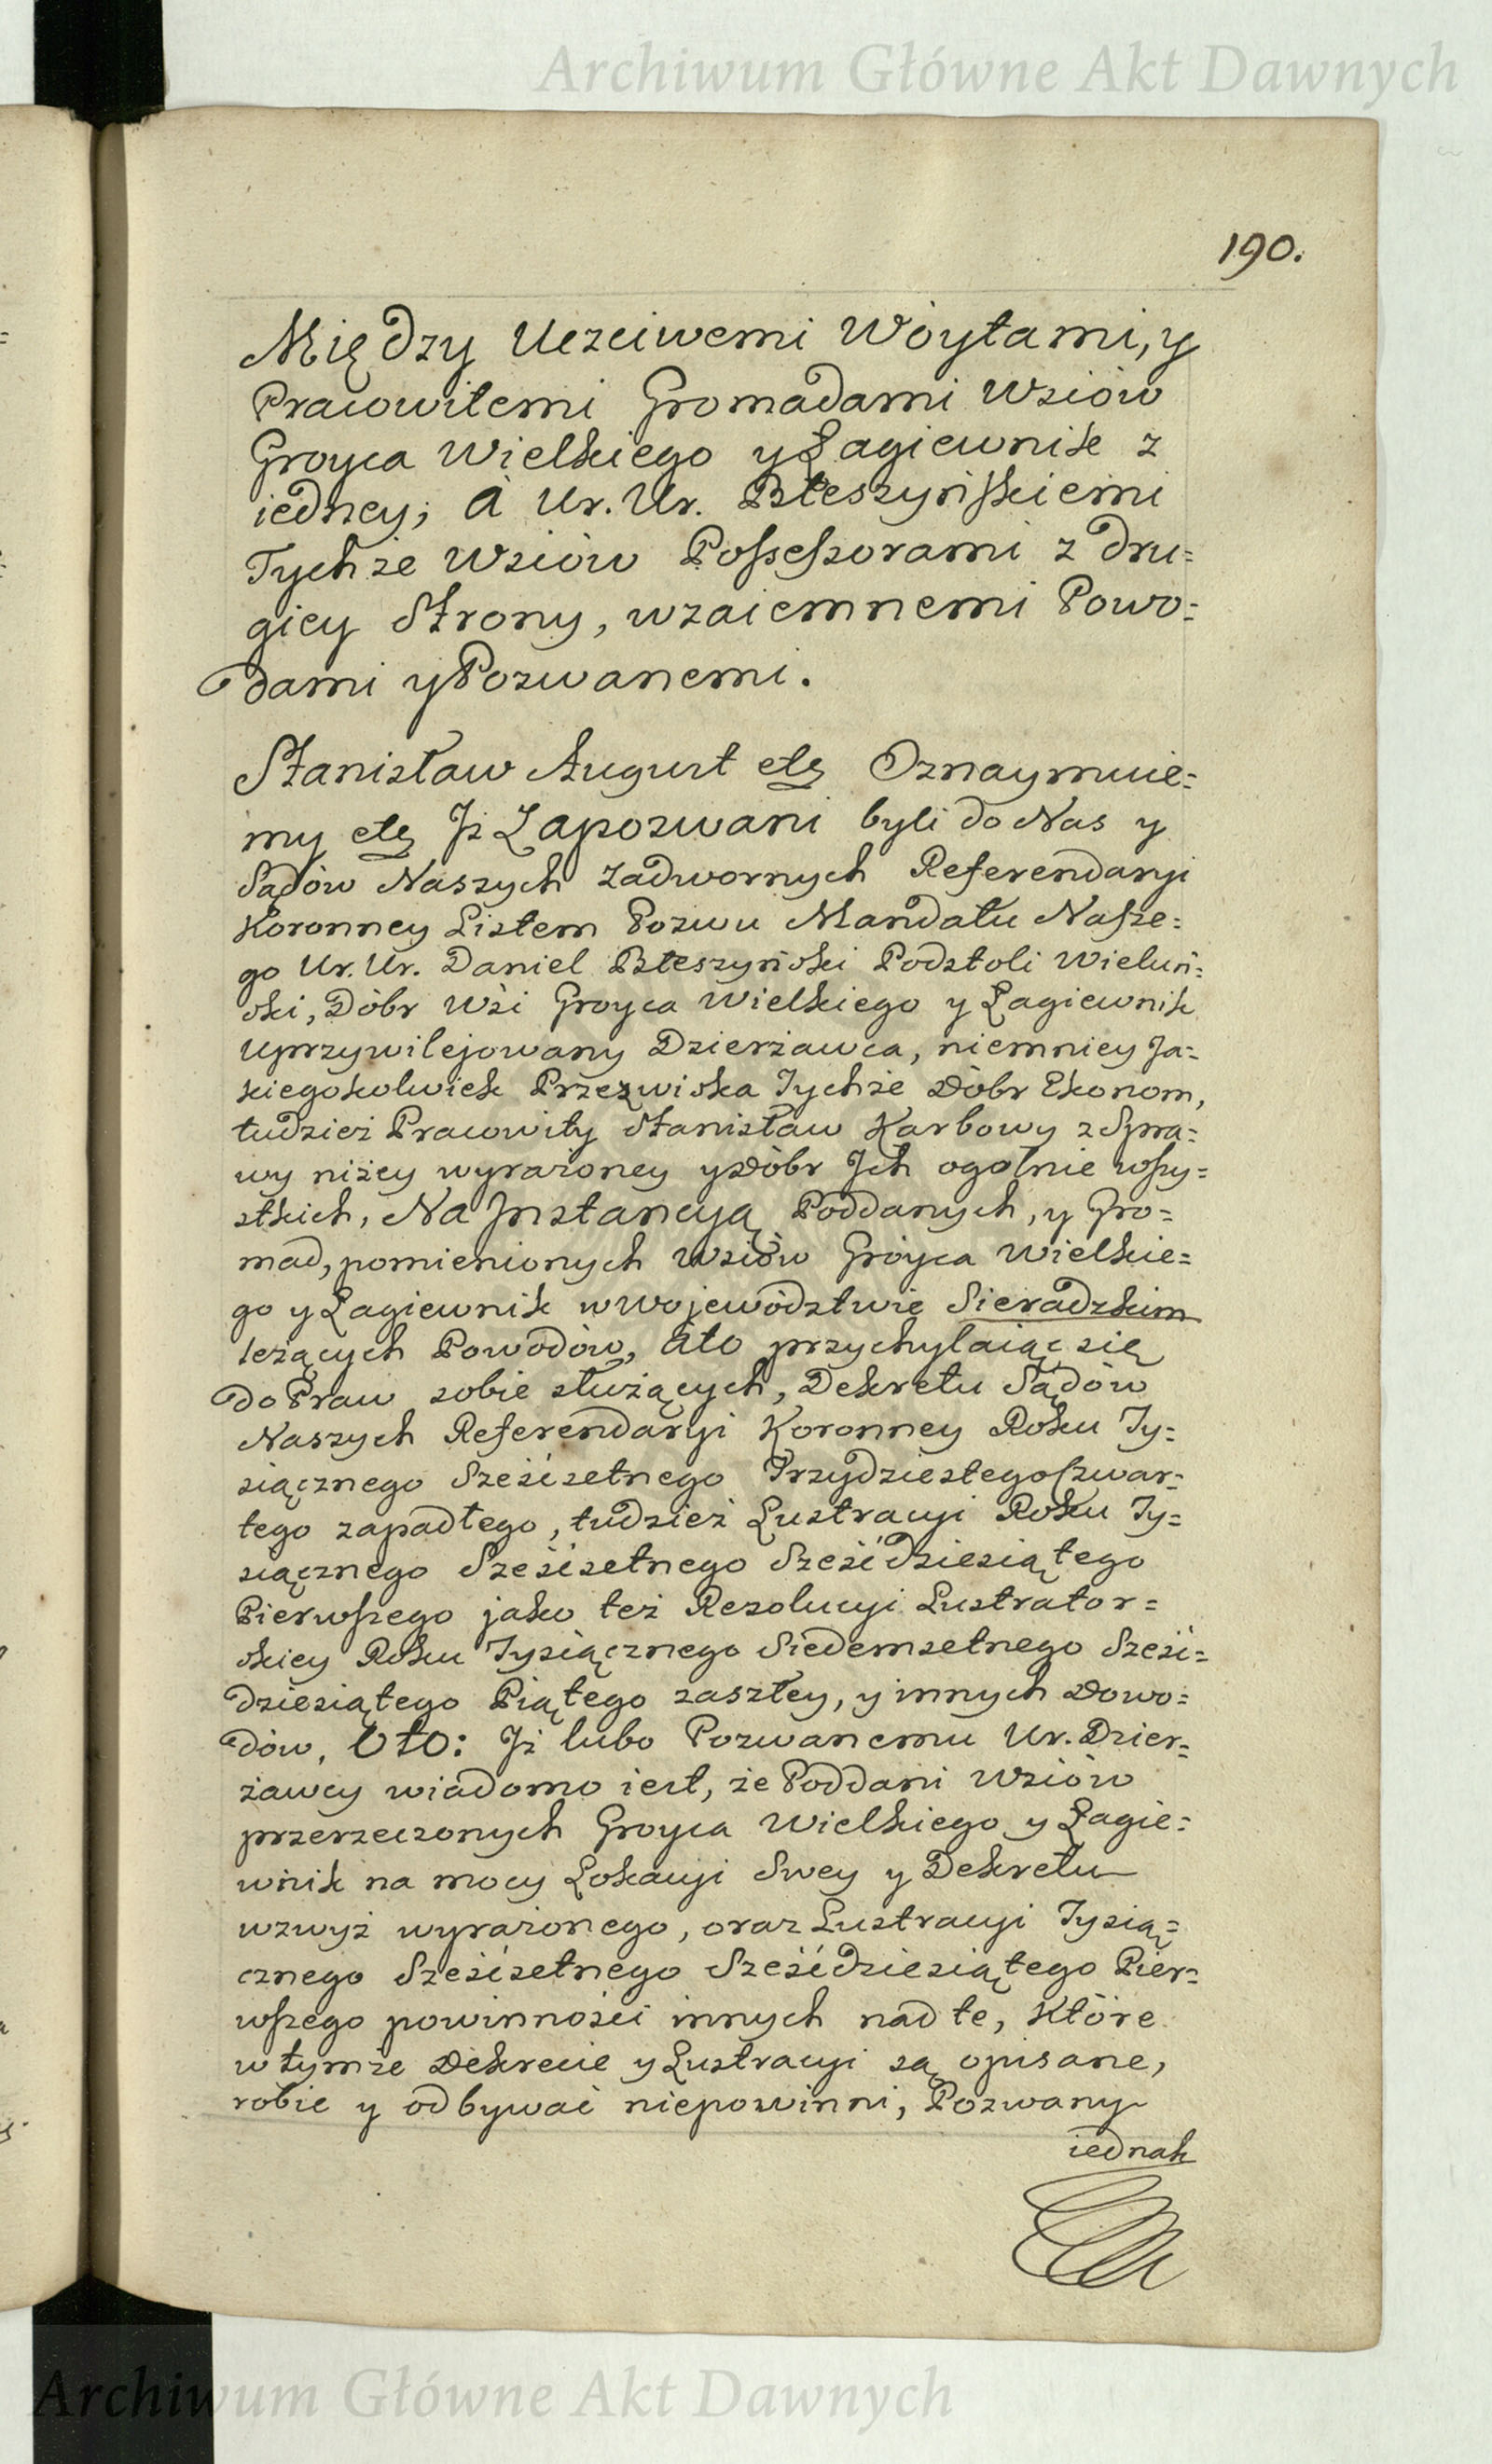 Archiwum Główne Akt Dawnych
190.
Między Uczciwemi Woytami, y
Pracowitemi Gromadami Wsiów
Groyca Wielkiego y Łagiewnik z
iedney; á Ur. Ur. Błeszyńskiemi
Tychże Wsiów Possessorami z dru=
giey Strony, wzaiemnemi Powo=
dami y Pozwanemi.
Stanisław August etc Oznaymuie=
my etc Jż Zapozwani byli do Nas y
Sądów Naszych Zadwornych Referendaryi
Koronney Listem Pozwu Mandatu Nasze=
go Ur. Ur. Daniel Błeszyński Podstoli Wieluń=
ski, Dóbr Wsi Groyca Wielkiego y Łagiewnik
Uprzywilejowany Dzierżawca, niemniey Ja=
kiegokolwiek Przezwiska Tychże Dóbr Ekonom,
tudzież Pracowity Stanisław Karbowy z Spra=
wy niżey wyrażoney y Dóbr Jch ogolnie wszy=
stkich, Na Jnstancyą Poddanych, y Gro=
mad, pomienionych Wsiów Gróyca Wielkie=
go y Łagiewnik w Województwie Sieradzkim
leżących Powodów, áto przychylaiąc się
do Praw sobie służących, Dekretu Sądów
Naszych Referendaryi Koronney Roku Ty=
siącznego Sześćsetnego Trzydziestego Czwar=
tego zapadłego, tudzież Lustracyi Roku Ty=
siącznego Sześćsetnego Sześćdziesiątego
Pierwszego jako też Rezolucyi Lustrator=
skiey Roku Tysiącznego Siedemsetnego Sześć=
dziesiątego Piątego zaszłey, y innych Dowo=
dów, Oto: Jż lubo Pozwanemu Ur. Dzier=
żawcy wiadomo iest, że Poddani Wsiów
przerzeczonych Groyca Wielkiego y Łagie=
wnik na mocy Lokacyi Swey y Dekretu
wzwyż wyrażonego, oraz Lustracyi Tysią=
cznego Sześćsetnego Sześćdziesiątego Pier=
wszego powinności innych nad te, Które
w tymże Dekrecie y Lustracyi są opisane,
robić y odbywać niepowinni, Pozwany
iednak
Archiwum Główne Akt Dawnych